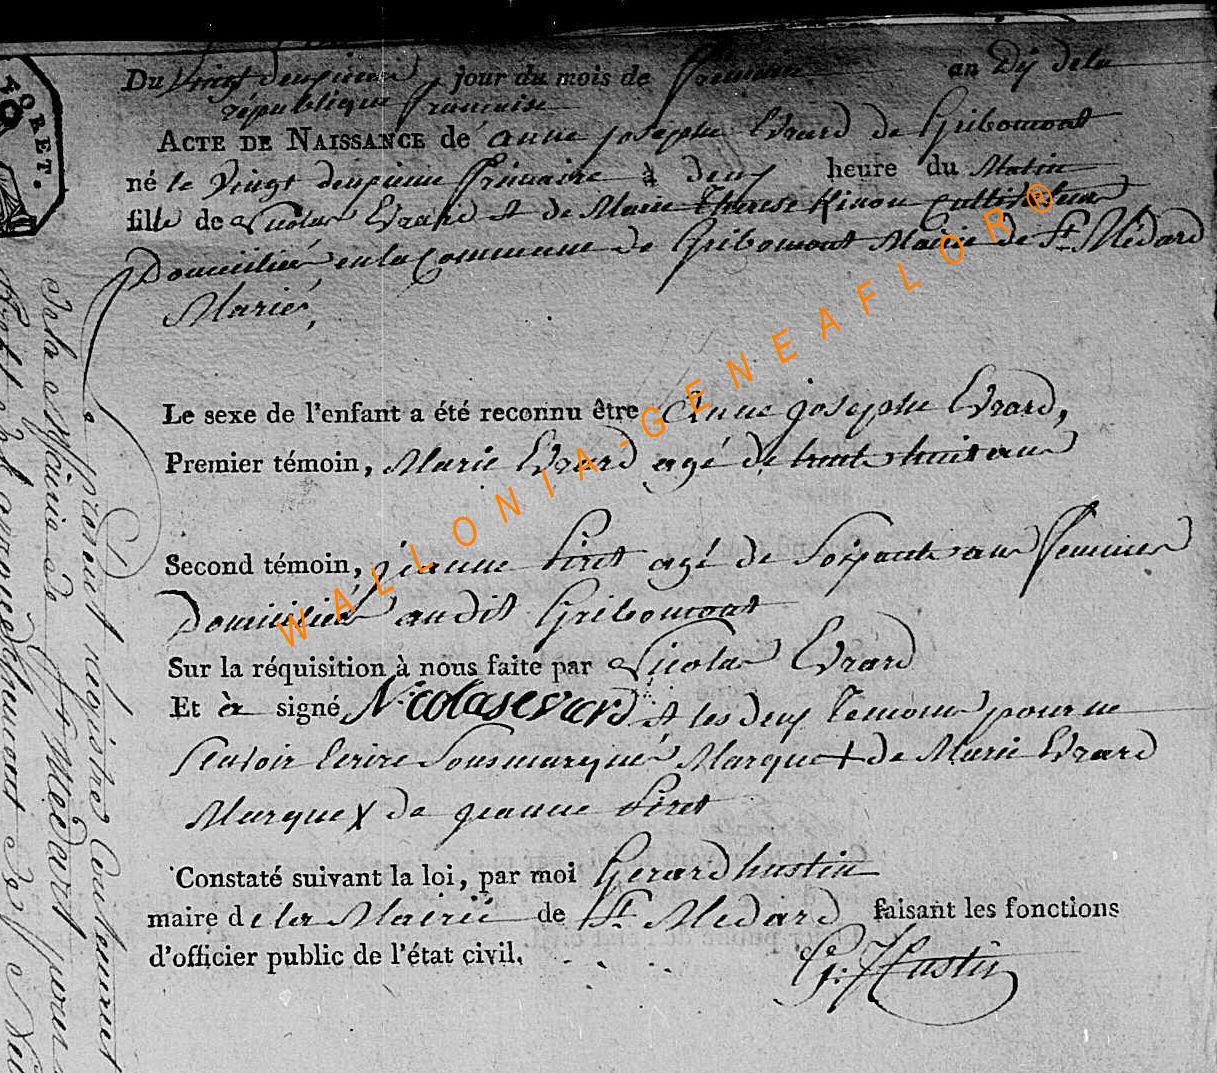 Du Vingt deuxieme jour du mois de frimaire an Dix de la
république française
ACTE DE NAISSANCE de anne josephe Evrard de Gribomont
né le Vingt deuxieme frimaire à deux heure du Matin
fille de Nicolas Evrard et de Marie Therese Kinon Cultivateurs
Domiciliés en la Commune de Gribomont Mairie de St. Médard
Mariés,
Le sexe de l'enfant a été reconnu être Anne josephe Evrard,
Premier témoin, Marie Evrard agé de trente huit ans
Second témoin, jeanne Piret agé de Soixante ans
Domiciliés audit Gribomont
Sur la réquisition à nous faite par Nicolas Evrard
Et à signé Nicolas evrard et les deux Temoins pour ne
Scavoir Ecrire Sousmarqués Marque + de Marie Evrard
Marque X de jeanne Piret
Constaté suivant la loi, par moi Gerard hustin
maire de la Mairie de St. Médard faisant les fonctions
d'officier public de l'état civil.
G: Hustin
FORET.
WALLONIA-GENEAFLOR®
présent registre Contenant
de la Mairie de St Médart pour